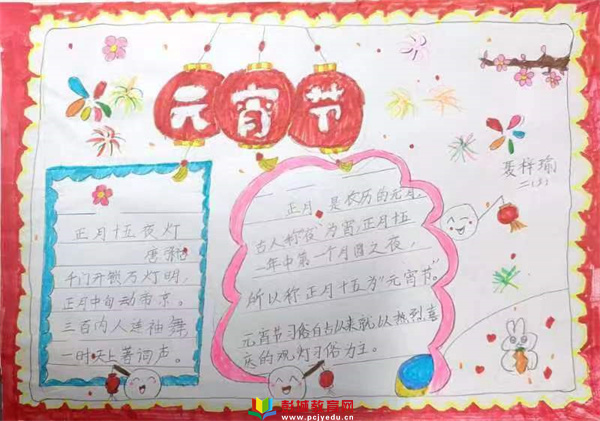 元宵节
梓瑜
二(3)
正月十五夜灯
唐
千门开锁万灯明,
正月中自动帝京。
三百内人连袖舞
一时天上著词声。
正月是农历的元月,
古人称"夜"为宵,正月十五
一年中第一个月圆之夜,
所以称正月十五为"元宵节"。
元宵节习俗自古以来就以热烈喜
庆的观灯习俗为主。
彭城教育网
www.pcjyedu.cn